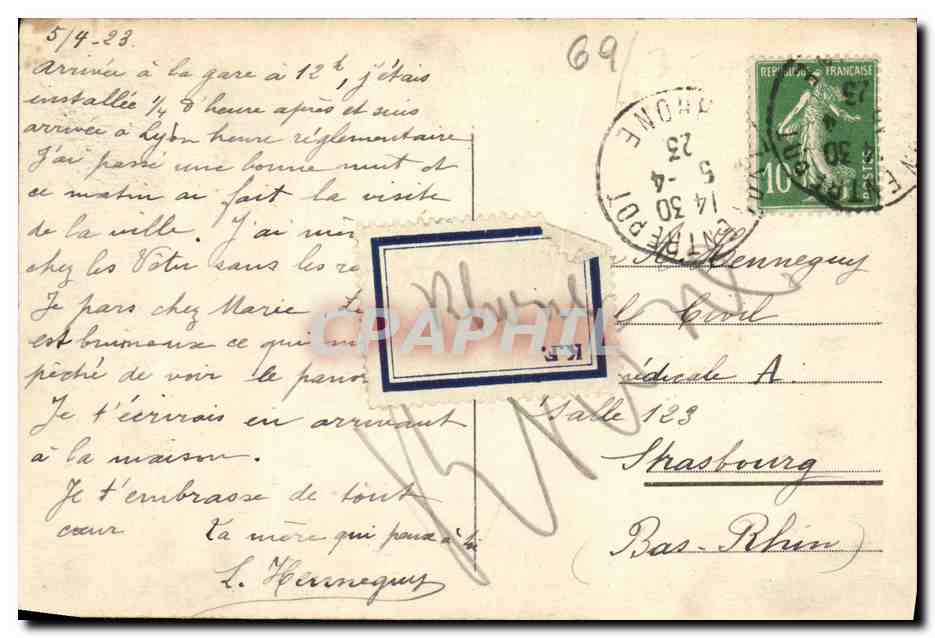 5/4-23
69
Arrivée à la gare à 12h, j'étais
installée 1/4 d'heure après et suis
arrivée à Lyon heure réglementaire
J'ai passé une bonne nuit et
ce matin ai fait la visite
de la ville. J'ai
chez les Votu sans les
Je pars chez Marie.
est brumeux ce qui
pêché de voir le
Je t'écrirais en arrivant
à la maison.
Je t'embrasse de tout
cœur Ta mère qui
L. Henneguy
Rhône
K.F.
CPAPHIL
ENTREPOT
14 30
5 -4
23
RHONE
REPUBLIQUE FRANÇAISE
10
POSTES
Henneguy
Civil
A.
Salle 123
Strasbourg
(Bas-Rhin)
Rhône